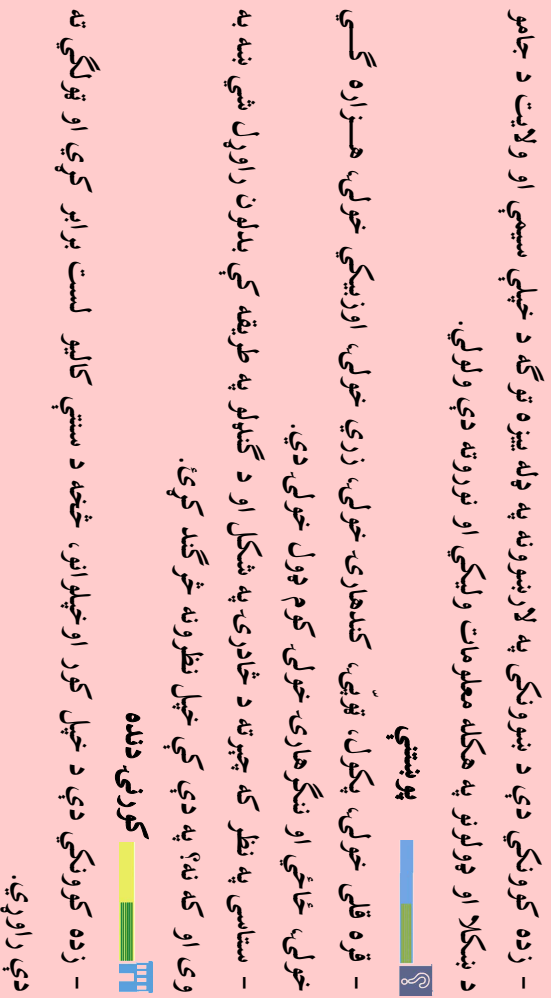 - زده کوونکي دي د ښوونکي په لارښوونه په ډله ييزه توگه د خپلي سيمي او ولايت د جامو
د ښکلا او ډولونو په هکله معلومات وليکي او نوروته دي ولولي.
پوښتنې
- قره قلی خولۍ، پکول، ټوپۍ، کندهارۍ خولۍ، زري خولۍ، اوزبيکي خولۍ، هــزاره گــي
خولۍ، ځاځي او ننگرهارۍ خولۍ کوم ډول خولۍ دي.
- ستاسې په نظر که چيرته د څادرۍ په شکل او د گنډلو په طريقه کې بدلون راوړل شي ښه به
وي او که نه؟ په دې کې خپل نظرونه څرگند کړئ.
کورنۍ دنده
- زده کوونکي دې د خپل کور او خپلوانو، څخه د سنتي کاليو لست برابر کړي او ټولگي ته
دې راوړي.